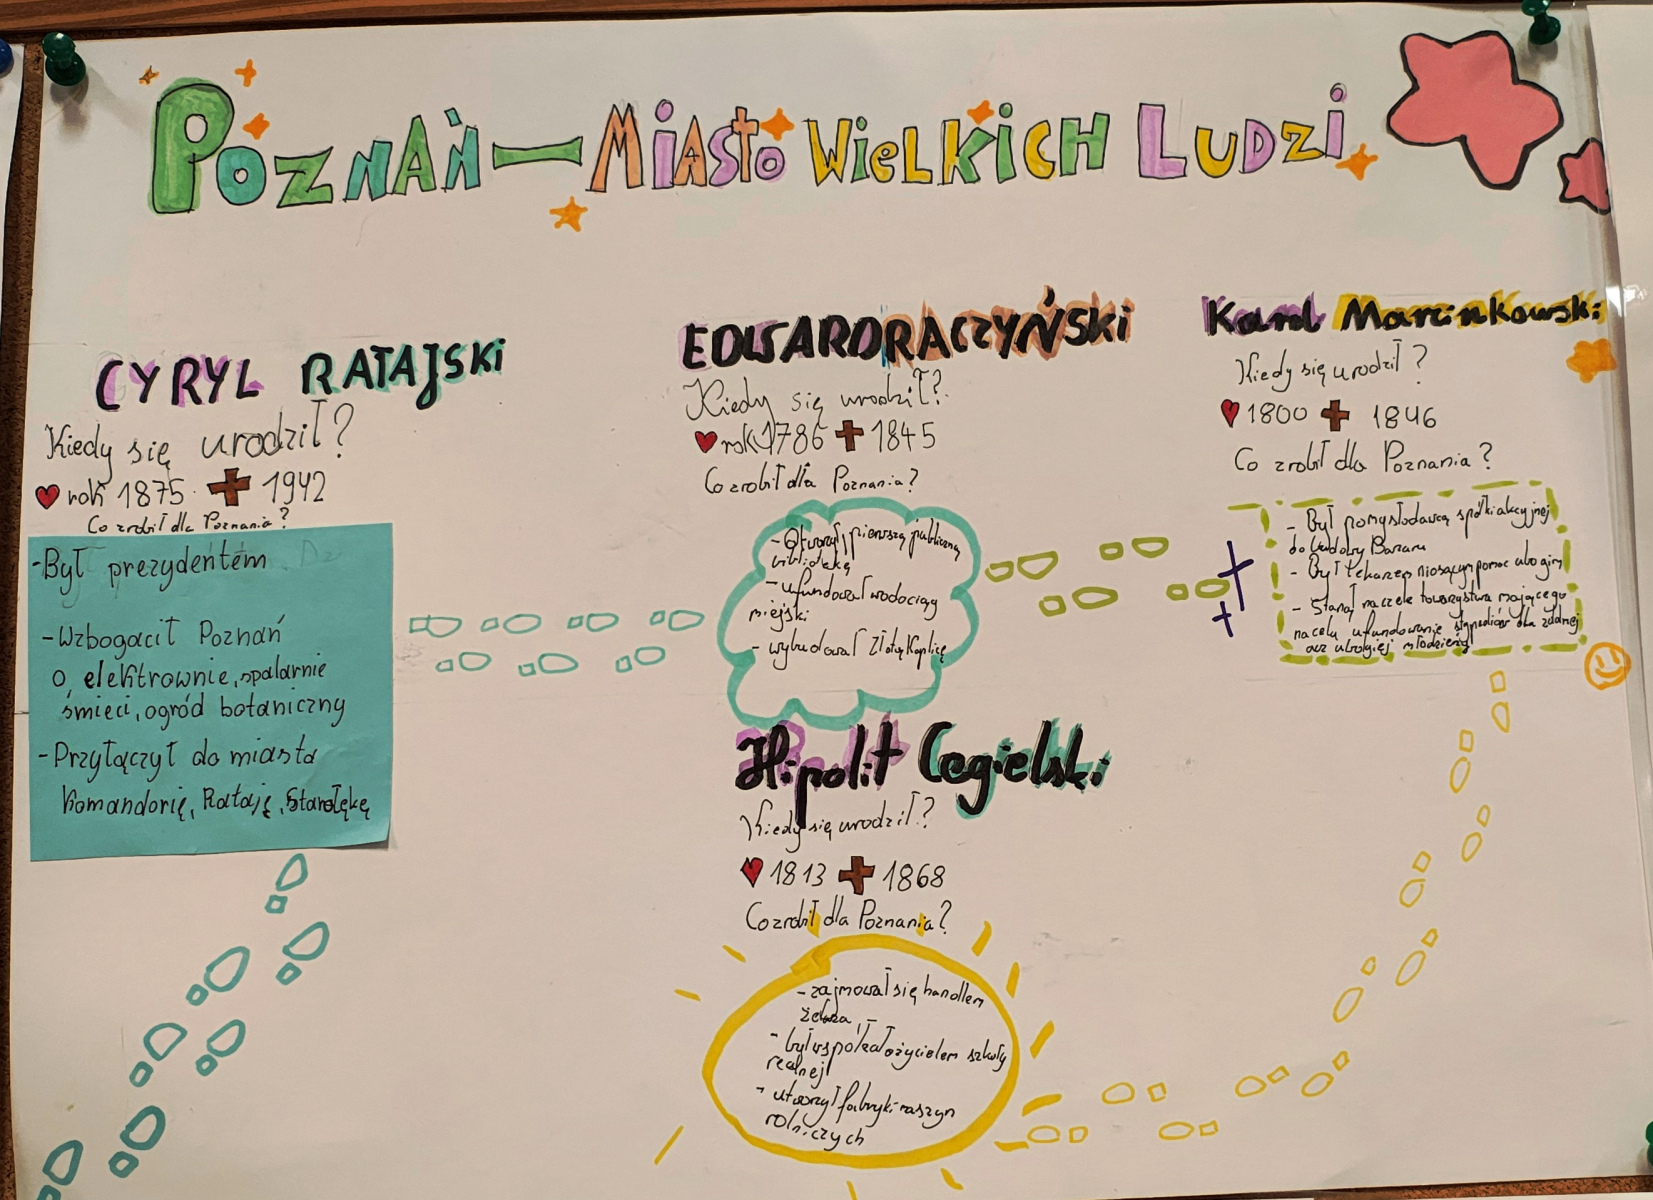 Poznań — Miasto Wielkich Ludzi
CYRYL RATAJSKi
Kiedy się urodził?
rok 1875 1942
Co zrobił dla Poznania?
-Był prezydentem
-Wzbogacił Poznań
o elektrownie, spalarnie
śmieci, ogród botaniczny
-Przyłączył do miasta
Komandorię, Rataję, Starołękę
EDWARD RACZYŃSKi
Kiedy się urodził?
rok 1786 1845
Co zrobił dla Poznania?
- Otworzył pierwszą publiczną
bibliotekę
- ufundował wodociąg
miejski
- wybudował Złotą Kaplicę
Karol Marcinkowski
Kiedy się urodził?
1800 1846
Co zrobił dla Poznania?
- Był pomysłodawcą spółki akcyjnej
do budowy Bazaru
- Był lekarzem niosącym pomoc ubogim
- Stanął na czele towarzystwa mającego
na celu ufundowanie stypendiów dla zdolnej
oraz ubogiej młodzieży
Hipolit Cegielski
Kiedy się urodził?
1813 1868
Co zrobił dla Poznania?
- zajmował się handlem
żelaza
- był współzałożycielem szkoły
realnej
- utworzył fabryki maszyn
rolniczych